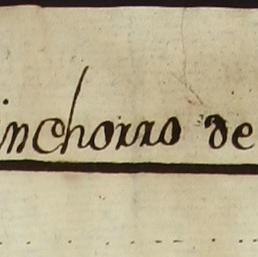 inchorro de